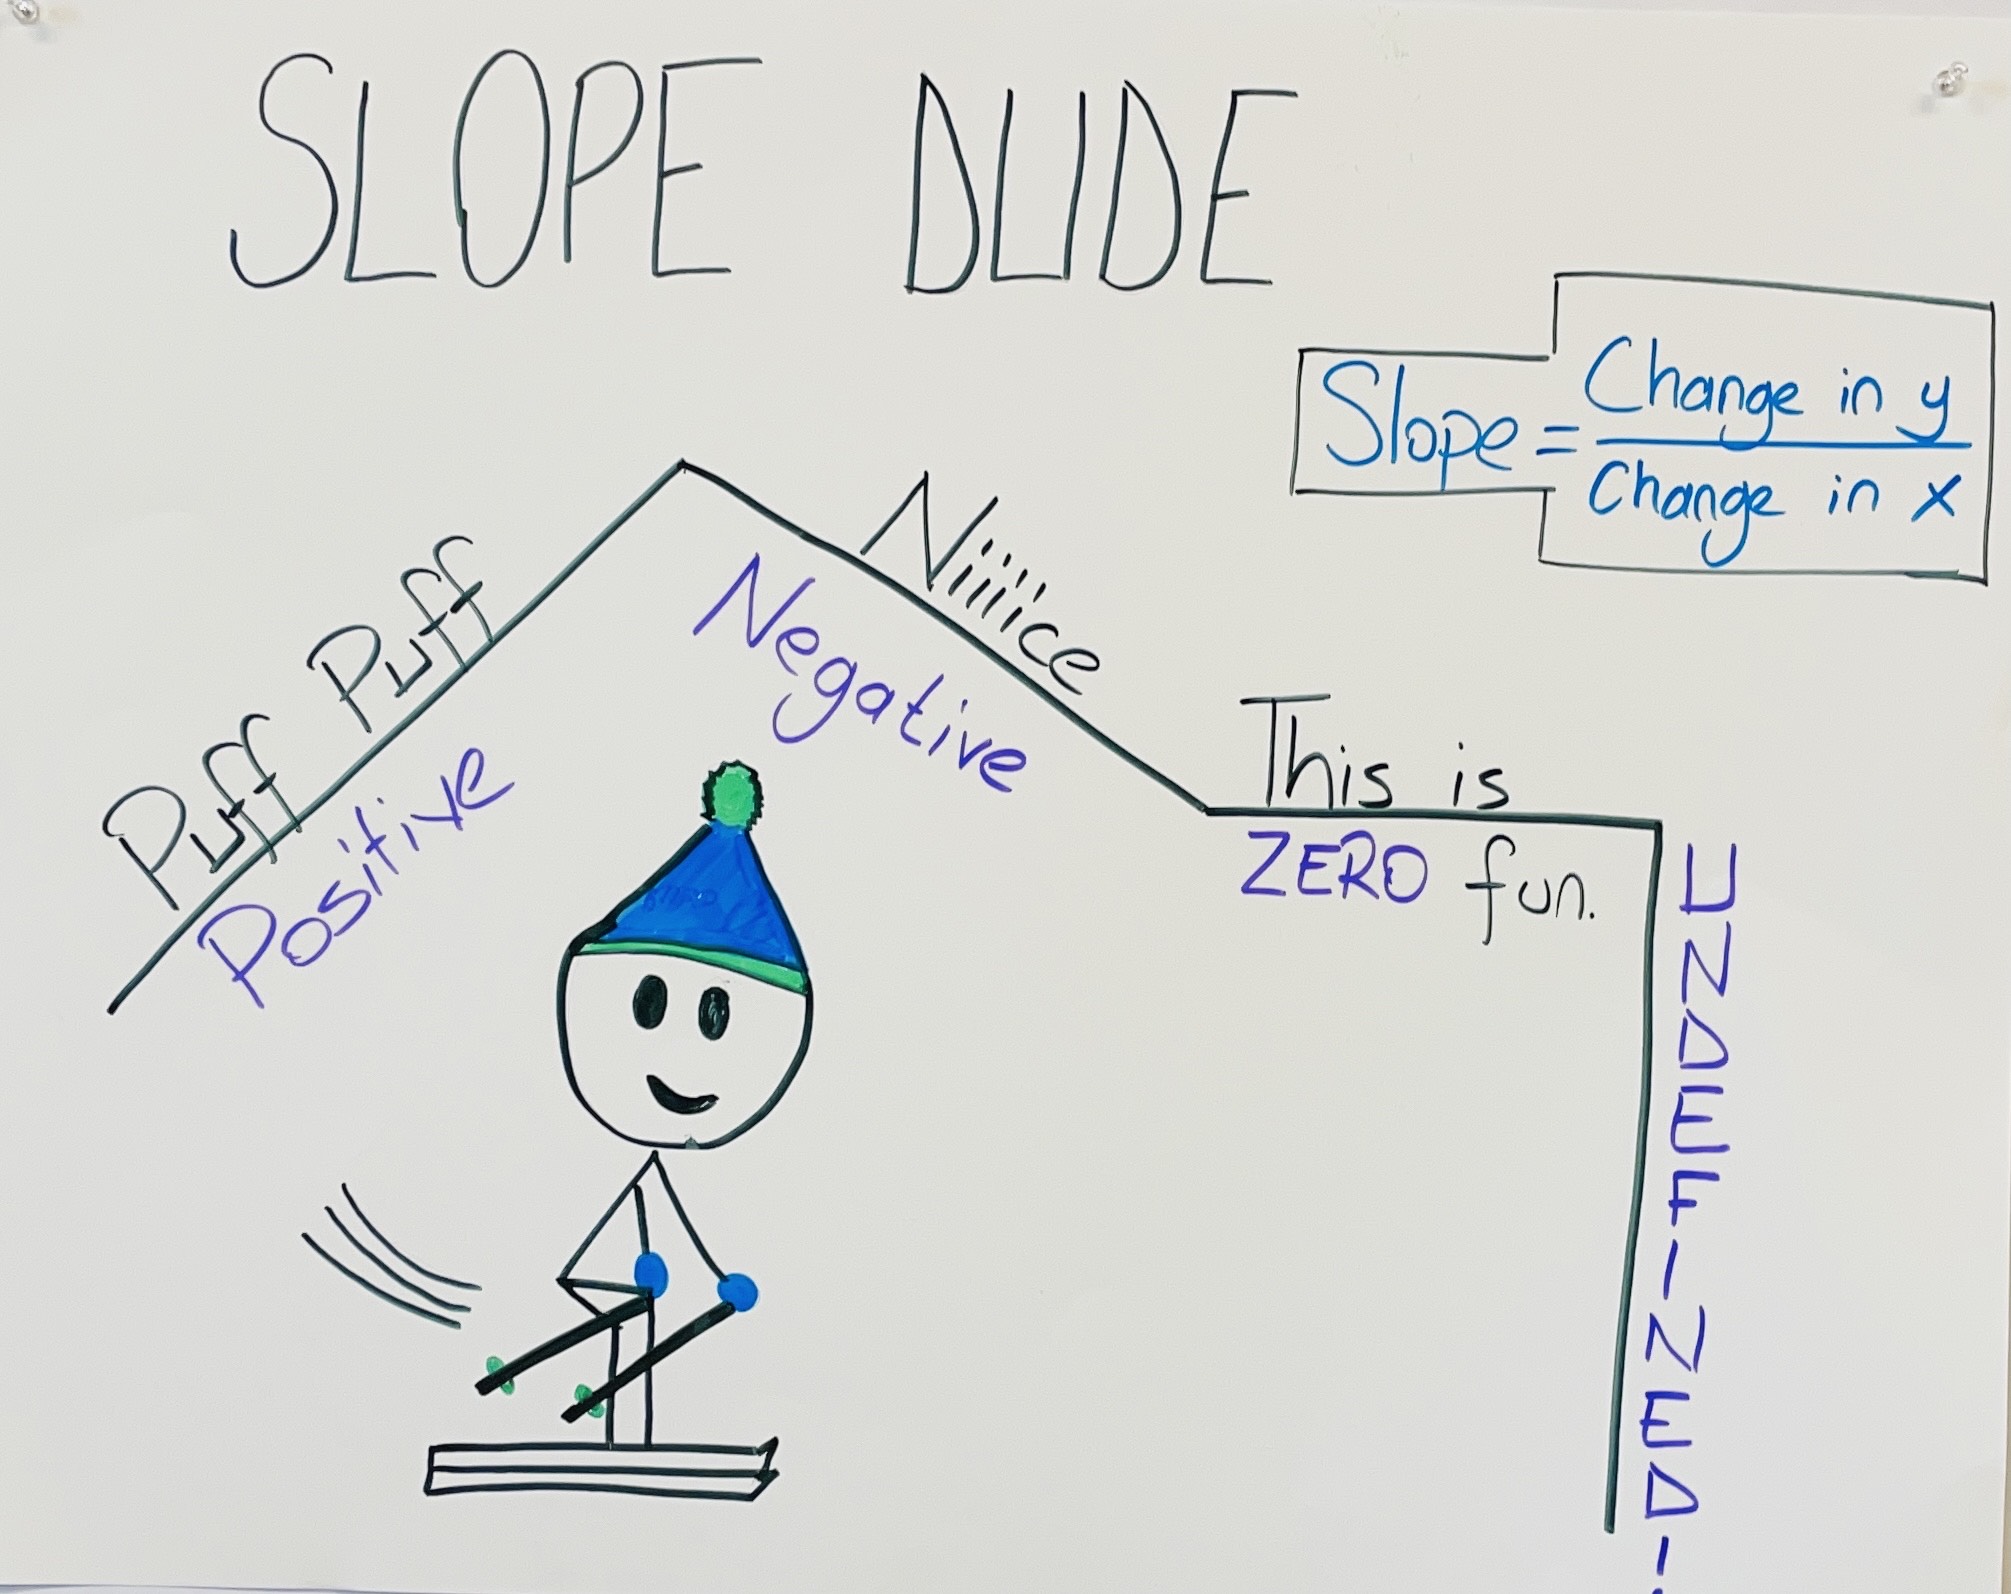 SLOPE DUDE
Slope = Change in y
Change in x
Puff Puff
Positive
Niiiice
Negative
This is
ZERO fun.
UNDEFINED!